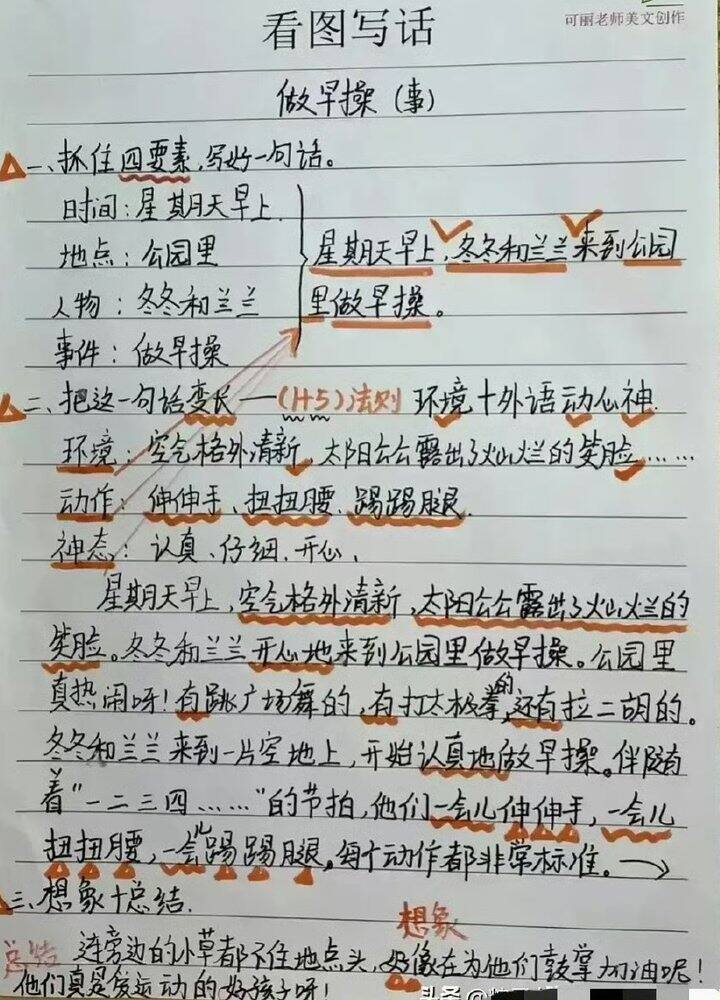 看图写话
可丽老师美文创作
做早操（事）
一、抓住四要素，写好一句话。
时间：星期天早上.
地点：公园里
人物：冬冬和兰兰
事件：做早操
星期天早上，冬冬和兰兰来到公园
里做早操。
二、把这一句话变长—（1+5）法则 环境+外语动心神.
环境：空气格外清新，太阳公公露出了灿烂的笑脸……
动作：伸伸手、扭扭腰、踢踢腿.
神态：认真、仔细、开心、
星期天早上，空气格外清新，太阳公公露出了灿烂的
笑脸。冬冬和兰兰开心地来到公园里做早操。公园里
真热闹呀！有跳广场舞的，有打太极拳的，还有拉二胡的。
冬冬和兰兰来到一片空地上，开始认真地做早操。伴随
着“一二三四……”的节拍，他们一会儿伸伸手，一会儿
扭扭腰，一会儿踢踢腿。每个动作都非常标准。→
三、想象+总结.
想象
总结 连旁边的小草都不住地点头，好像在为他们鼓掌加油呢！
他们真是爱运动的好孩子呀！